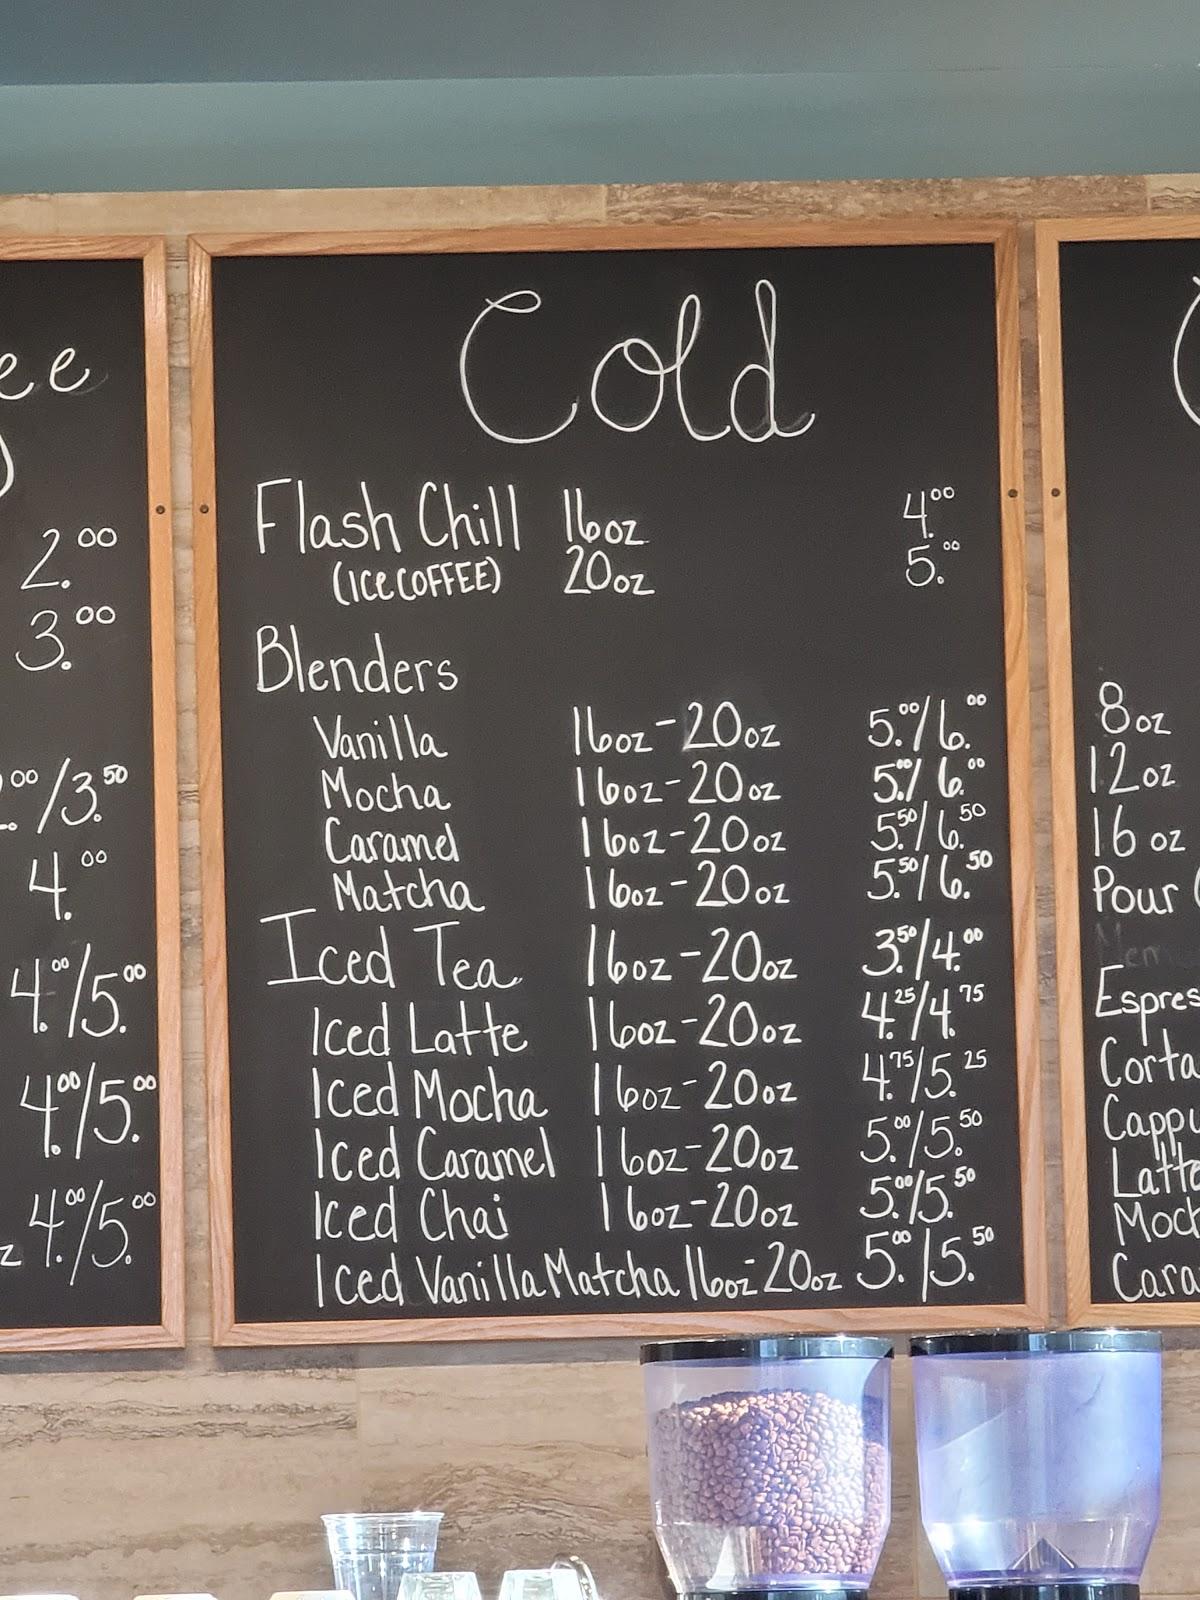 ee
2.00
3.00
/3.50
4.00
4.00/5.00
4.00/5.00
z 4.00/5.00
Cold
Flash Chill 16oz 4.00
(ICE COFFEE) 20oz 5.00
Blenders
Vanilla 16oz-20oz 5.00/6.00
Mocha 16oz-20oz 5.00/6.00
Caramel 16oz-20oz 5.50/6.50
Matcha 16oz-20oz 5.50/6.50
Iced Tea 16oz-20oz 3.50/4.00
Iced Latte 16oz-20oz 4.25/4.75
Iced Mocha 16oz-20oz 4.75/5.25
Iced Caramel 16oz-20oz 5.00/5.50
Iced Chai 16oz-20oz 5.00/5.50
Iced Vanilla Matcha 16oz-20oz 5.00/5.50
8oz
12oz
16 oz
Pour (
Espres
Corta
Cappu
Latte
Moc
Cara